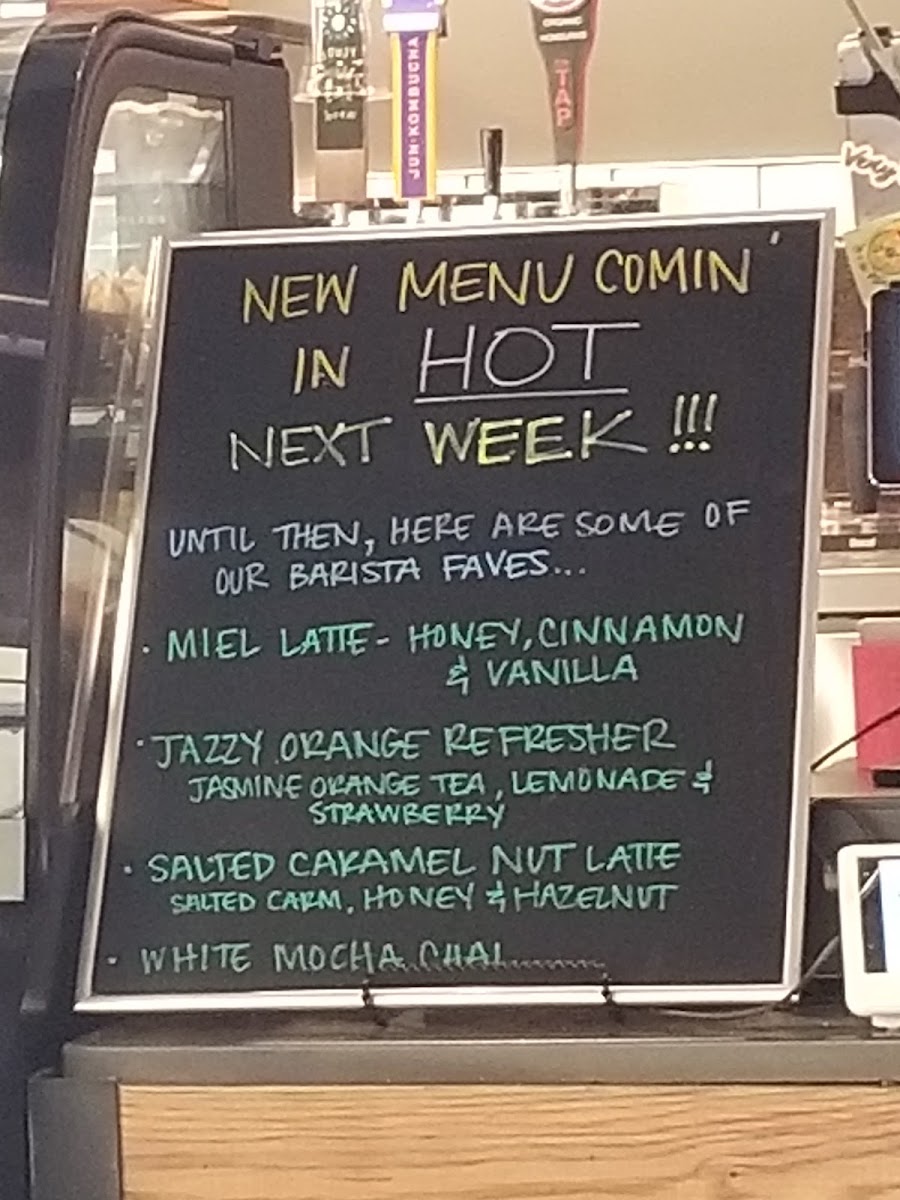 JUN-KOMBUCHA
ORGANIC
TAP
Very
NEW MENU COMIN'
IN HOT
NEXT WEEK!!!
UNTIL THEN, HERE ARE SOME OF
OUR BARISTA FAVES...
· MIEL LATTE - HONEY, CINNAMON
& VANILLA
· JAZZY ORANGE REFRESHER
JASMINE ORANGE TEA, LEMONADE &
STRAWBERRY
· SALTED CARAMEL NUT LATTE
SALTED CARM, HONEY & HAZELNUT
· WHITE MOCHA CHAI